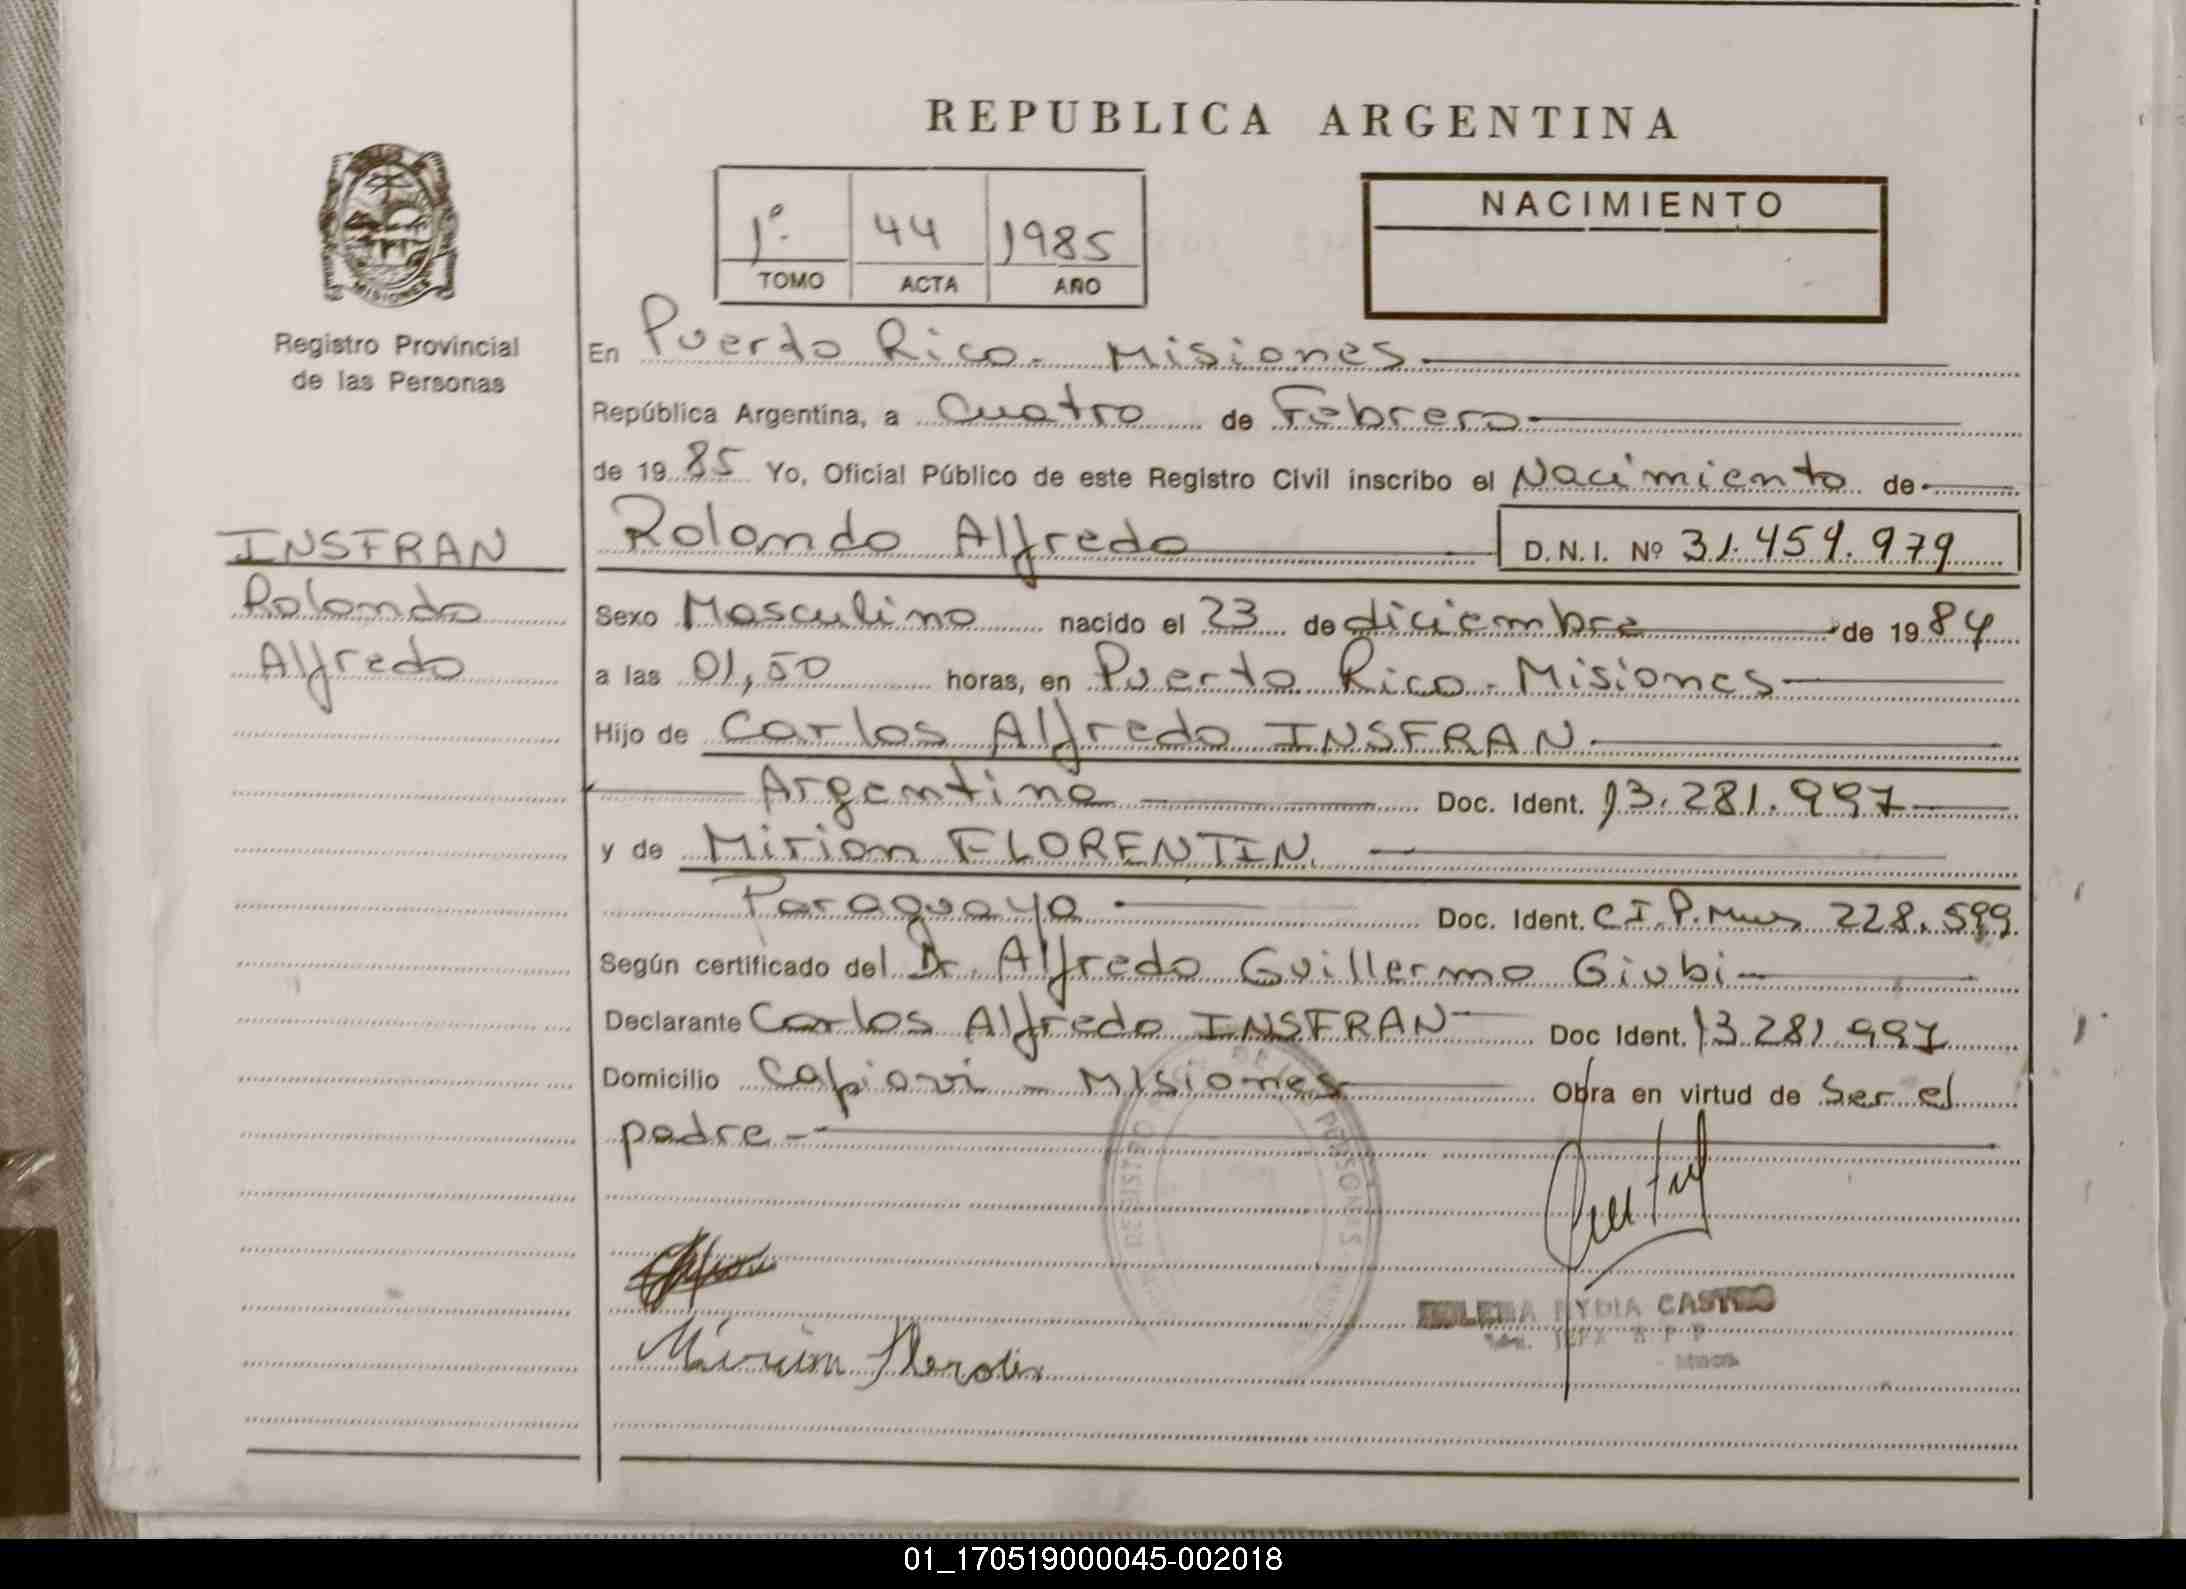 REPUBLICA ARGENTINA
MISIONES
Registro Provincial
de las Personas
1º. 44 1985
TOMO ACTA AÑO
NACIMIENTO
En Puerto Rico - Misiones
República Argentina, a Cuatro de Febrero
de 19 85 Yo, Oficial Público de este Registro Civil inscribo el Nacimiento de
INSFRAN
Rolando
Alfredo
Rolando Alfredo D.N.I. Nº 31.459.979
Sexo Masculino nacido el 23 de diciembre de 19 84
a las 01,50 horas, en Puerto Rico - Misiones
Hijo de Carlos Alfredo INSFRAN
Argentino Doc. Ident. 13.281.997
y de Mirian FLORENTIN.
Paraguaya Doc. Ident. C I. P. Mnes 228.599.
Según certificado del Dr. Alfredo Guillermo Giubi
Declarante Carlos Alfredo INSFRAN Doc Ident. 13.281.997
Domicilio Capiovi - Misiones Obra en virtud de Ser el
padre -
REGISTRO DE PERSONAS
NYDIA CASTRO
Mirian Florentin
01_170519000045-002018